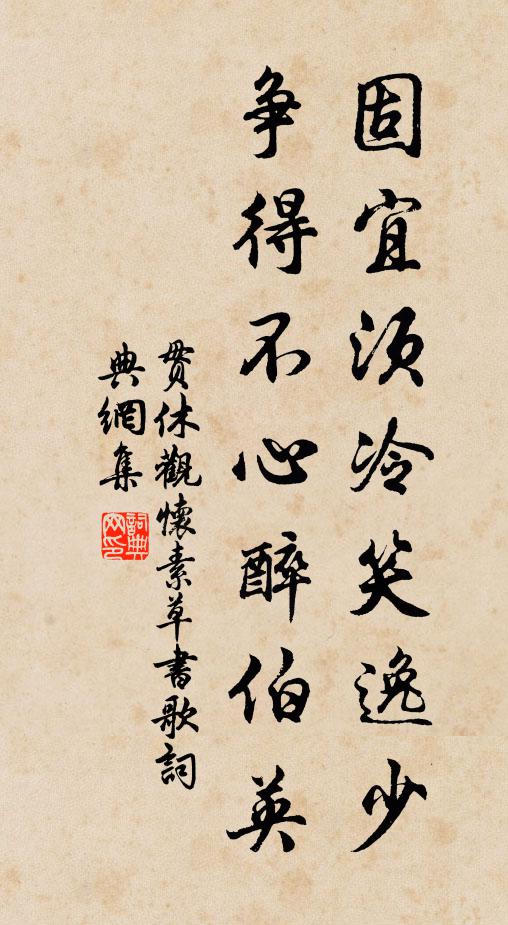 固宜須冷笑逸少
爭得不心醉伯英
貫休觀懷素草書歌詞
典網集
詞典網印